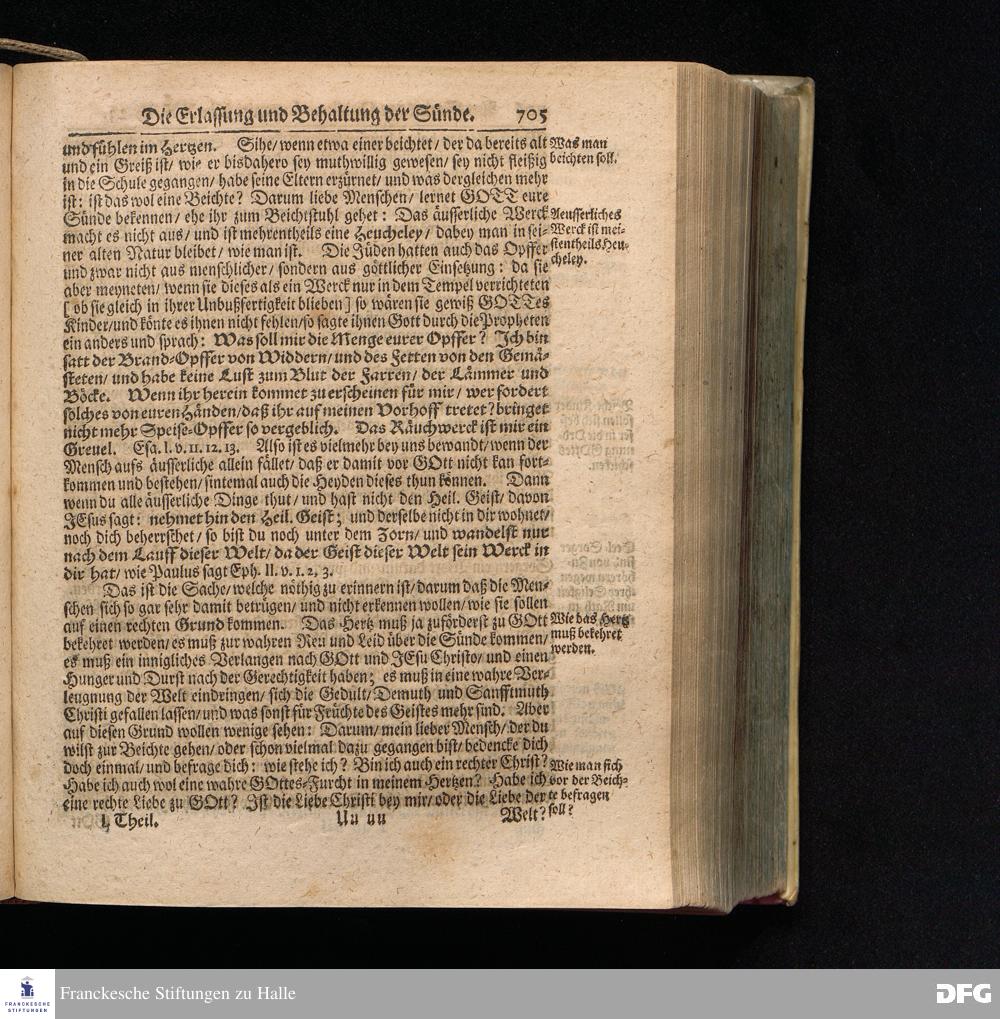 Die Erlassung und Behaltung der Sünde. 705
und fühlen im Hertzen. Sihe/ wenn etwa einer beichtet/ der da bereits alt
und ein Greiß ist/ wie er bisdahero sey muthwillig gewesen/ sey nicht fleißig
in die Schule gegangen/ habe seine Eltern erzürnet/ und was dergleichen mehr
ist: ist das wol eine Beichte? Darum liebe Menschen/ lernet GOTT eure
Sünde bekennen/ ehe ihr zum Beichtstuhl gehet: Das äusserliche Werck
macht es nicht aus/ und ist mehrentheils eine Heucheley/ dabey man in sei-
ner alten Natur bleibet/ wie man ist. Die Jüden hatten auch das Opffer
und zwar nicht aus menschlicher/ sondern aus göttlicher Einsetzung: da sie
aber meyneten/ wenn sie dieses als ein Werck nur in dem Tempel verrichteten
[ ob sie gleich in ihrer Unbußfertigkeit blieben] so wären sie gewiß GOTTes
Kinder/ und könte es ihnen nicht fehlen/ so sagte ihnen Gott durch die Propheten
ein anders und sprach: Was soll mir die Menge eurer Opffer? Ich bin
satt der Brand-Opffer von Widdern/ und des Fetten von den Gemä-
steten/ und habe keine Lust zum Blut der Farren/ der Lämmer und
Böcke. Wenn ihr herein kommet zu erscheinen für mir/ wer fordert
solches von euren Händen/ daß ihr auf meinen Vorhoff tretet? bringet
nicht mehr Speise-Opffer so vergeblich. Das Räuchwerck ist mir ein
Greuel. Esa. l. v. 11. 12. 13. Also ist es vielmehr bey uns bewandt/ wenn der
Mensch aufs äusserliche allein fället/ daß er damit vor GOtt nicht kan fort-
kommen und bestehen/ sintemal auch die Heyden dieses thun können. Dann
wenn du alle äusserliche Dinge thut/ und hast nicht den Heil. Geist/ davon
JEsus sagt: nehmet hin den Heil. Geist; und derselbe nicht in dir wohnet/
noch dich beherrschet/ so bist du noch unter dem Zorn/ und wandelst nur
nach dem Lauff dieser Welt/ da der Geist dieser Welt sein Werck in
dir hat/ wie Paulus sagt Eph. II. v. 1. 2, 3.
Das ist die Sache/ welche nöthig zu erinnern ist/ darum daß die Men-
schen sich so gar sehr damit betrügen/ und nicht erkennen wollen/ wie sie sollen
auf einen rechten Grund kommen. Das Hertz muß ja zuförderst zu GOtt
bekehret werden/ es muß zur wahren Reu und Leid über die Sünde kommen/
es muß ein innigliches Verlangen nach GOtt und JEsu Christo/ und einen
Hunger und Durst nach der Gerechtigkeit haben; es muß in eine wahre Ver-
leugnung der Welt eindringen/ sich die Gedult/ Demuth und Sanfftmuth
Christi gefallen lassen/ und was sonst für Früchte des Geistes mehr sind. Aber
auf diesen Grund wollen wenige sehen: Darum/ mein lieber Mensch/ der du
wilst zur Beichte gehen/ oder schon vielmal dazu gegangen bist/ bedencke dich
doch einmal/ und befrage dich: wie stehe ich? Bin ich auch ein rechter Christ?
Habe ich auch wol eine wahre GOttes-Furcht in meinem Hertzen? Habe ich
eine rechte Liebe zu GOtt? Ist die Liebe Christi bey mir/ oder die Liebe der
I. Theil. Uu uu Welt?
Was man
beichten soll.
Aeusserliches
Werck ist mei-
stentheils Heu-
cheley.
Wie das Hertz
muß bekehret
werden.
Wie man sich
vor der Beich-
te befragen
soll?
FRANCKESCHE
STIFTUNGEN
Franckesche Stiftungen zu Halle
DFG